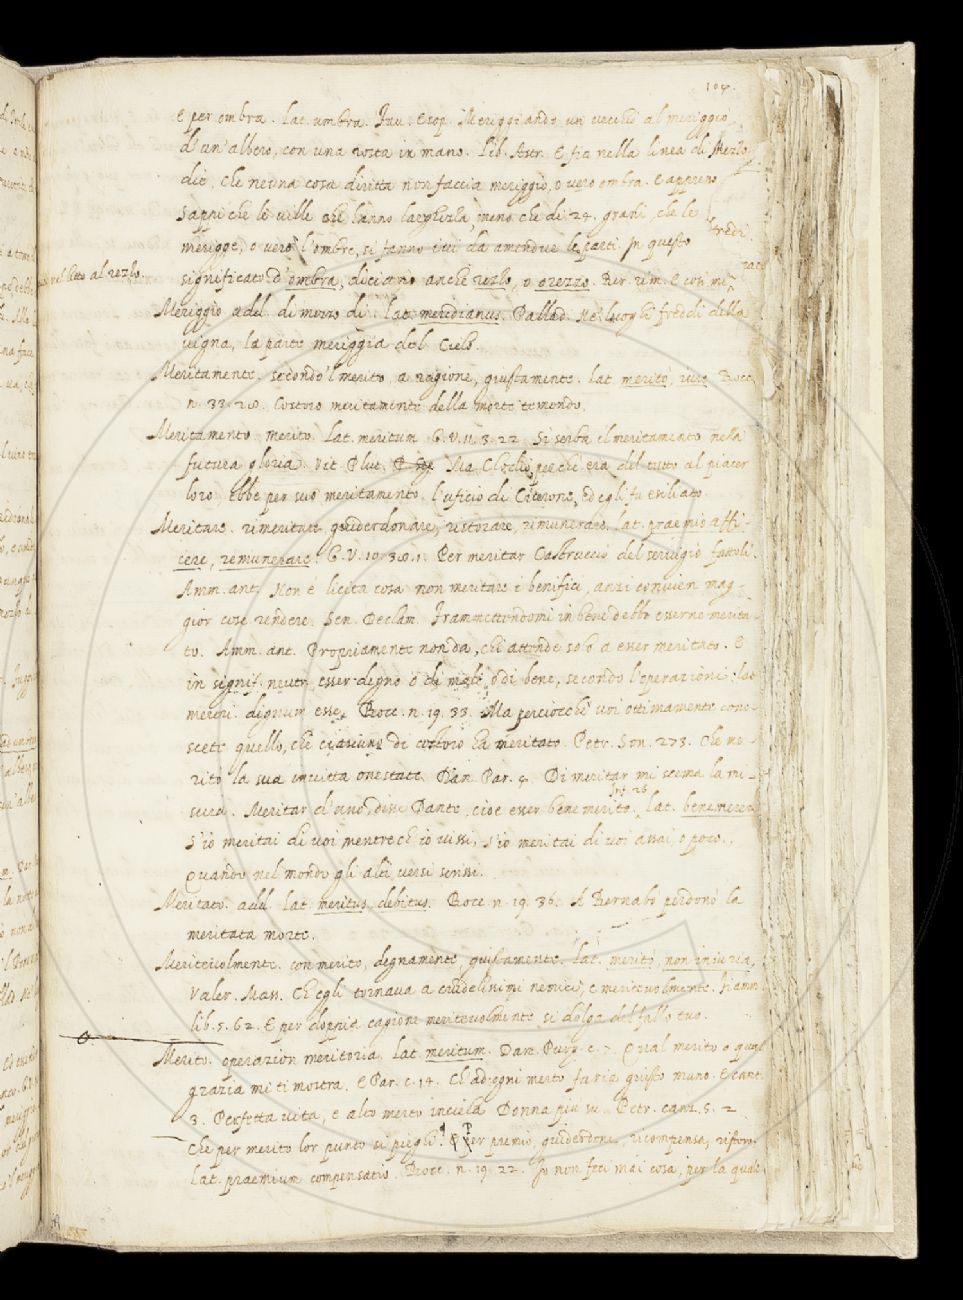 104.
E per ombra. Lat. umbra. Fau. Esop. Meriggiando un uccello al meriggio
d'un'albero, con una rosta in mano. Lib. Astr. E fia nella linea di Mezzo
die, che neuna cosa diritta non faccia meriggio, o vero ombra. E appreno
Sappi che le ville che hanno larghezza, meno che di 24. gradi, che le
meriggie, o vero l'ombre, si fanno ivi da amendue le parti. In questo
significato d'ombra, diciamo anche rezzo, o orezzo. Ber. rim. E con mi
nel letto al rezzo.
Meriggio add. di mezzo dì. lat. meridianus. Pallad. Ne' luoghi freddi della
vigna, la parte meriggia del Cielo.
Meritamente. secondo 'l merito, a ragione, giustamente. lat. merito, iure. Bocc.
n. 33. 20. Costoro meritamente della morte temendo.
Meritamento. merito. Lat. meritum. G. V. 11. 3. 22. Si serba il meritamento nella
futura gloria. Vit. Plut. Ma Clodio, perchè era del tutto al piacer
loro, ebbe per suo meritamento l'uficio di Cicerone, ed egli fu exiliato.
Meritare. rimeritare, guiderdonare, ristorare, rimunerare. Lat. praemio affi-
cere, remunerare. G. V. 10. 30. 1. Per meritar Castruccio del servigio fattoli.
Amm. ant. Non è licita cosa non meritare i benifici, anzi convien mag-
gior cose rendere. Sen. Declam. Frammettendomi in bene debbo esserne merita-
to. Amm. ant. Propriamente non da, chi attende solo a esser meritato. E
in signif. neutr. esser degno o di male, o di bene, secondo l'operazioni: lat.
mereri. dignum esse. Bocc. n. 19. 33. Ma perciocchè voi ottimamente cono-
scete quello, che ciascuno di costoro ha meritato. Petr. Son. 273. Che me-
ritò la sua invitta onestate. Dan. Par. 4. Di meritar mi scema la mi-
sura. Meritar d'uno, disse Dante, cioè esser benemerito. Inf. 26. Lat. benemereri
S'io meritai di voi mentre ch'io vissi, S'io meritai di voi assai, o poco,
Quando nel mondo gli alti versi scrissi.
Meritato. add. Lat. meritus, debitus. Bocc. n. 19. 36. A Bernabò perdonò la
meritata morte.
Meritevolmente. con merito, degnamente, giustamente. Lat. merito, non iniuria.
Valer. Mass. Ch'egli tornava a crudelissimi nemici, e meritevolmente. Fiamm.
lib. 5. 62. E per doppia cagione meritevolmente si dolga del fallo tuo.
Merito. operazion meritoria. Lat. meritum. Dan. Purg. c. 7. Qual merito o qual
grazia mi ti mostra. E Par. c. 14. Ch'ad ogni merto saria giusto muno. E cant.
3. Perfetta vita, e alto merto inciela Donna più su. Petr. canz. 5. 2
Che per merito lor punto si pieghi. Per premio, guiderdone, ricompensa, ristoro.
Lat. praemium compensatio. Bocc. n. 19. 22. Io non feci mai cosa, per la quale